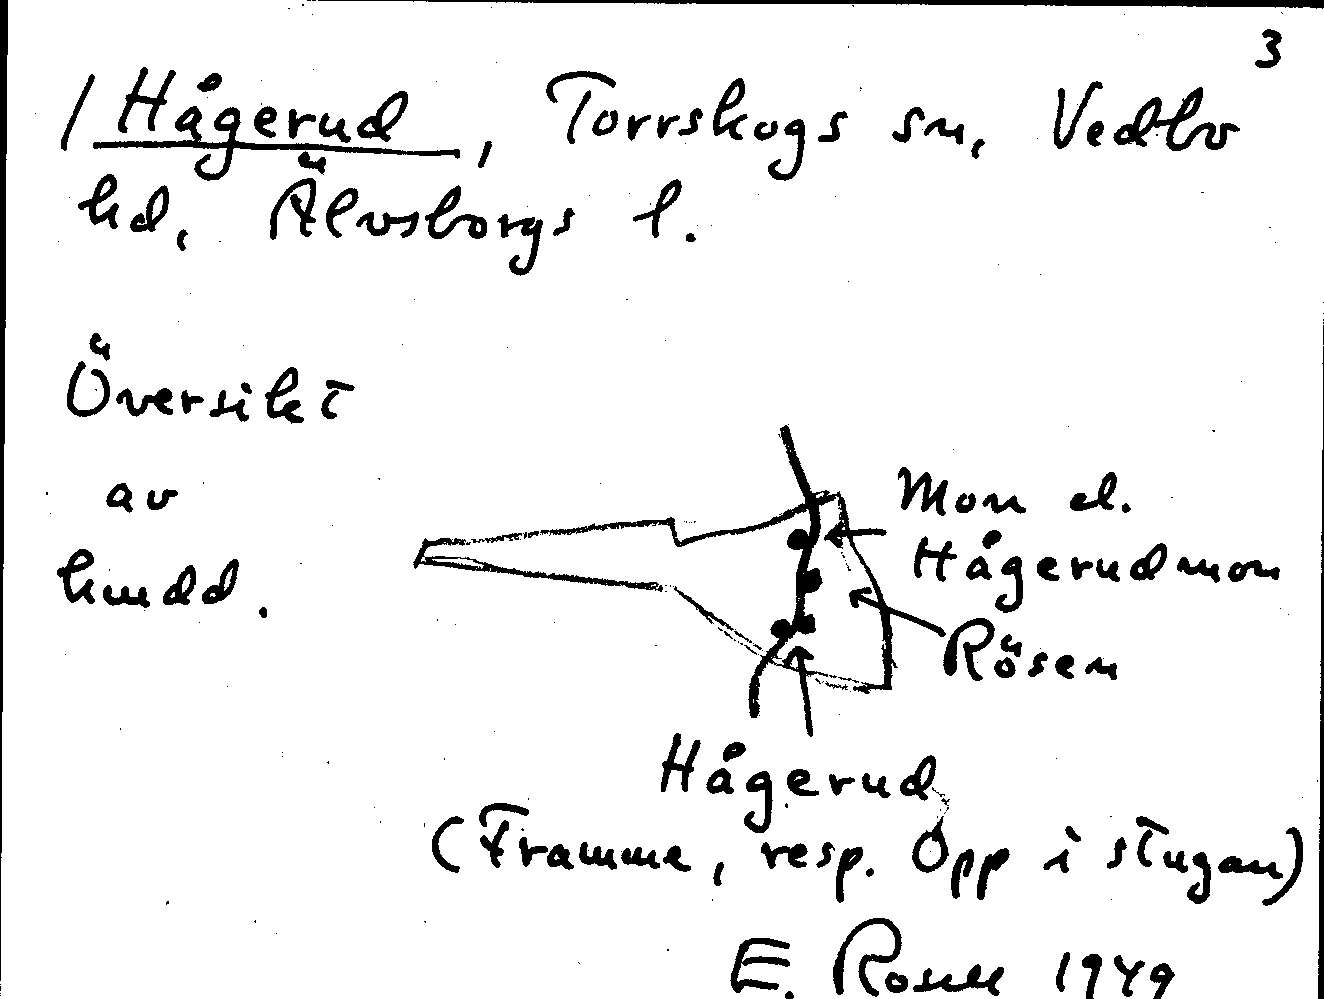 3
/ Hågerud, Torrskogs sn, Vedbo
hd, Älvsborgs l.
Översikt
av
hmdd.
Mon el.
Hågerudmon
Rösen
Hågerud
(Framme, resp. Opp i stugan)
E. Rosell 1949